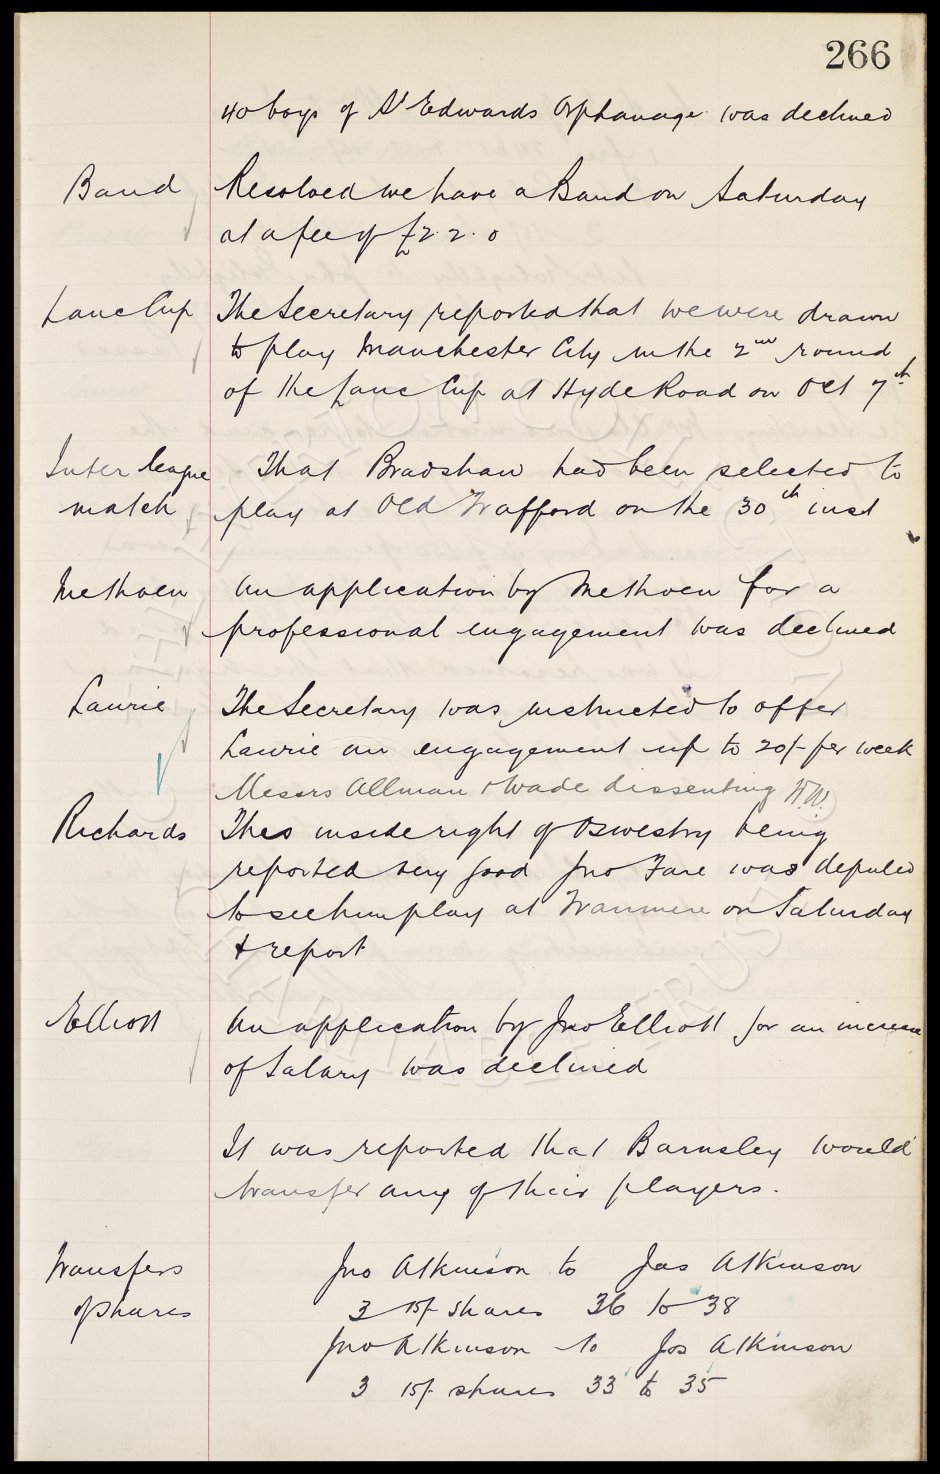 266
40 boys of St Edwards Orphanage was declined
Band
Resolved we have a Band on Saturday
at a fee of £2.2.0
Lanc Cup
The Secretary reported that we were drawn
to play Manchester City in the 2nd round
of the Lanc Cup at Hyde Road on Oct 7th
Inter league
match
That Bradshaw had been selected to
play at Old Trafford on the 30th inst
Methven
An application by Methven for a
professional engagement was declined
Laurie
The Secretary was instructed to offer
Laurie an engagement up to 20/- per week
Messrs Allman & Wade dissenting W.W.
Richards
The inside right of Oswestry being
reported very good Jno Fare was deputed
to see him play at Tranmere on Saturday
& report
Elliott
An application by Jno Elliott for an increase
of Salary was declined
It was reported that Barnsley would
transfer any of their players.
Transfers
of shares
Jno Atkinson to Jas Atkinson
3 15/- shares 36 to 38
Jno Atkinson to Jos Atkinson
3 15/- shares 33 to 35